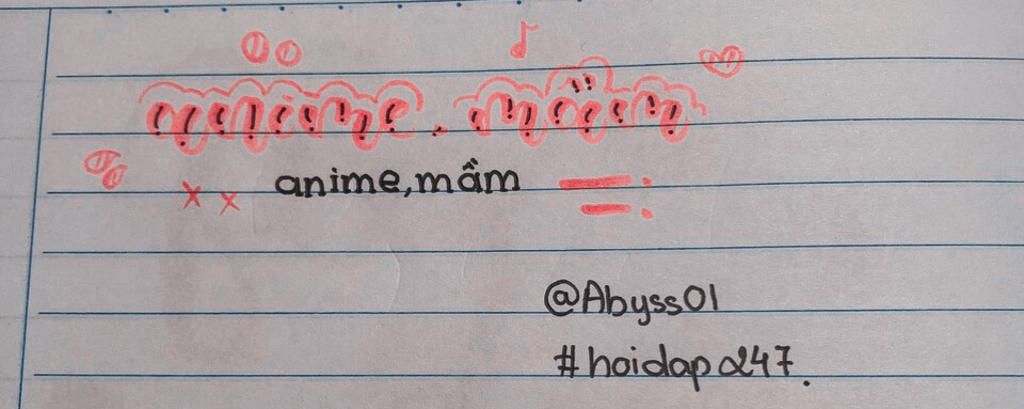 anime, mầm
anime,mầm
@Abyss01
#hoidap247.